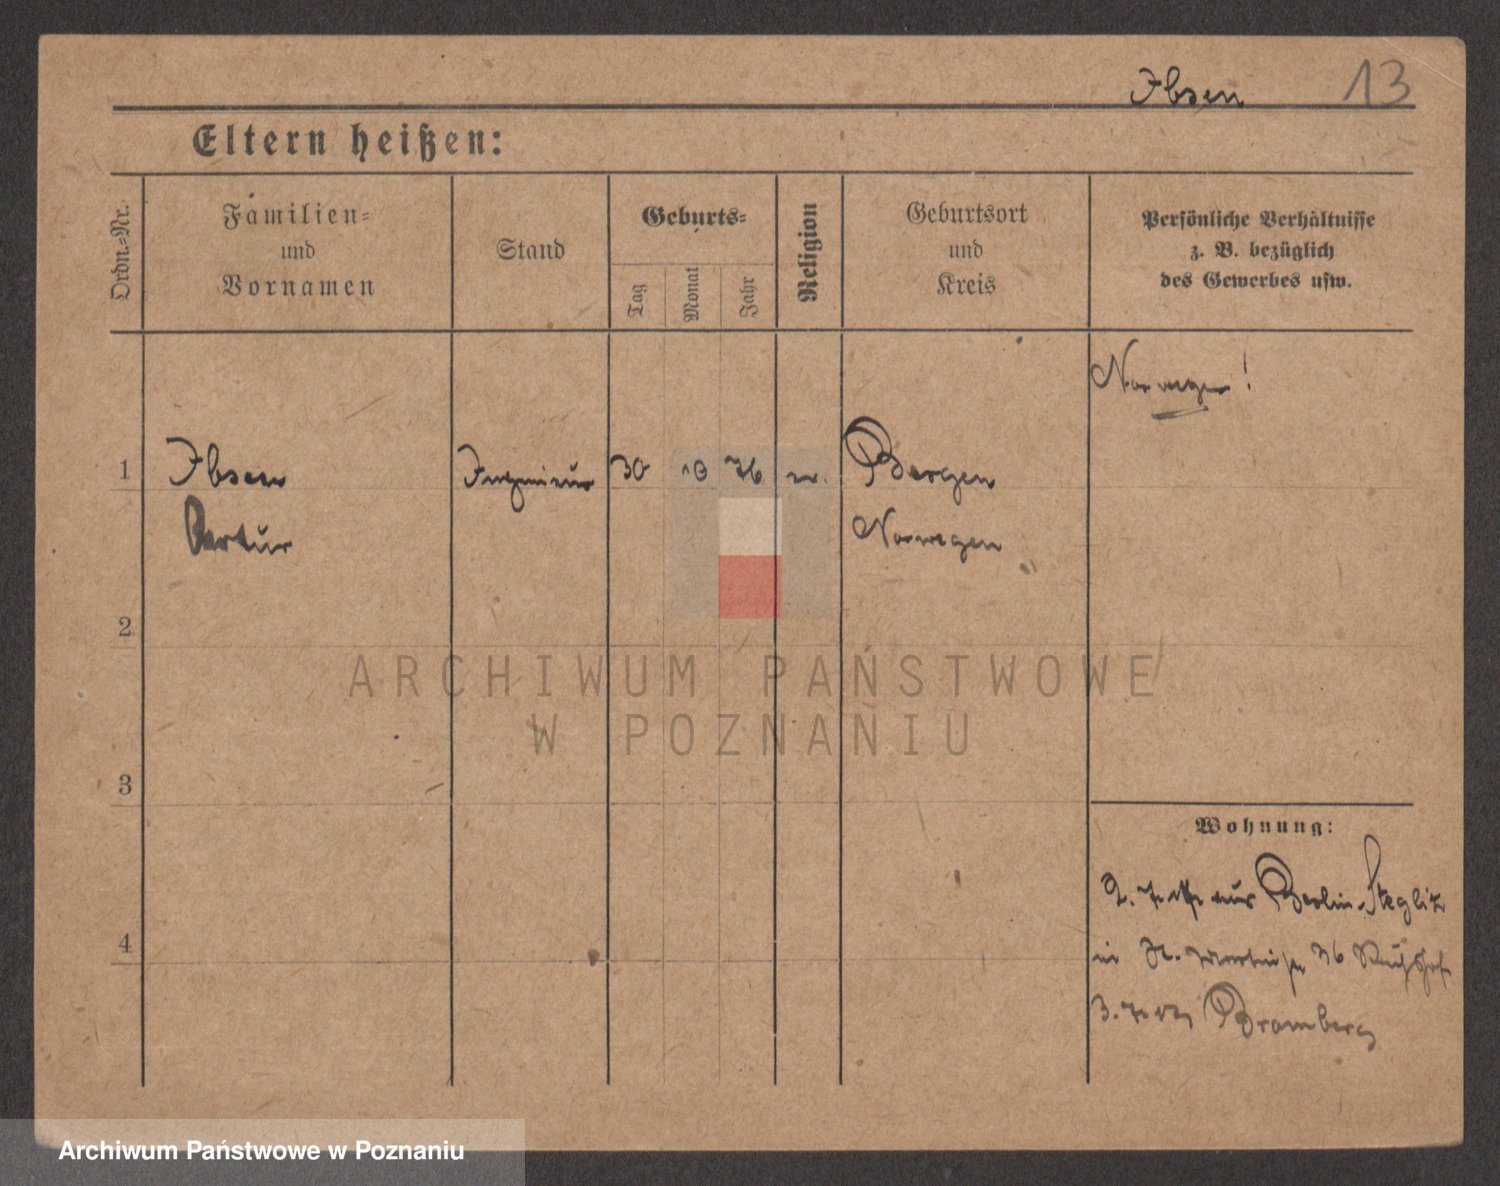 Ibsen 13
Eltern heißen:
Ordn.-Nr.
Familien-
und
Vornamen
Stand
Geburts-
Tag
Monat
Jahr
Religion
Geburtsort
und
Kreis
Persönliche Verhältnisse
z. B. bezüglich
des Gewerbes usw.
Norweger!
1 Ibsen Ingenieur 30 10 76 ev. Bergen
Artur Norwegen
2
3
4
Wohnung:
aus Berlin-Steglitz
in St. 36
Bromberg
ARCHIWUM PAŃSTWOWE
W POZNANIU
Archiwum Państwowe w Poznaniu